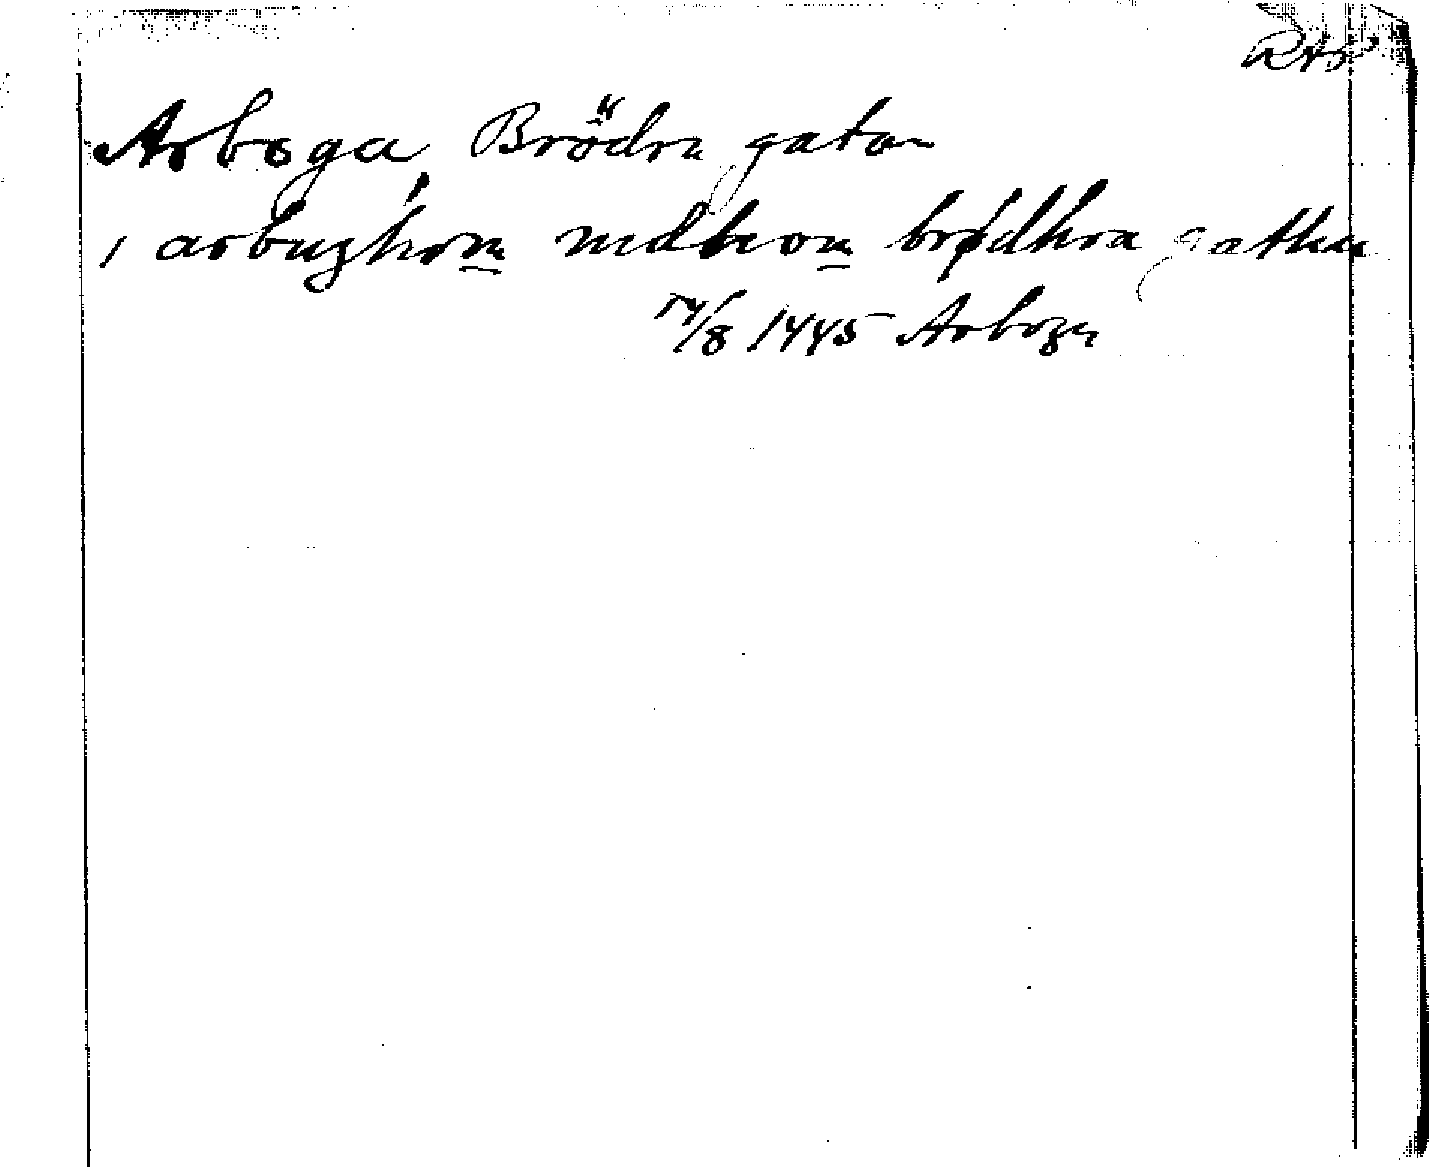 RAP
Arboga, Brödra gatan
i arbughom mællom brødhra gathu
14/8 1445 Arboga